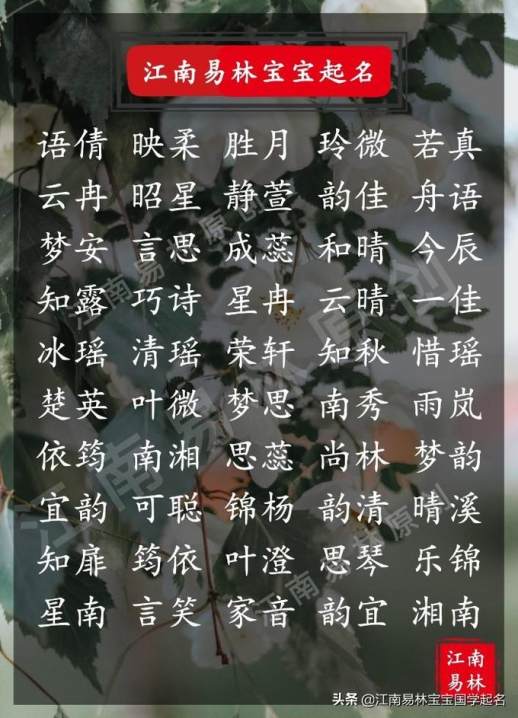 江南易林宝宝起名
语倩 映柔 胜月 玲微 若真
云冉 昭星 静萱 韵佳 舟语
梦安 言思 成蕊 和晴 今辰
知露 巧诗 星冉 云晴 一佳
冰瑶 清瑶 荣轩 知秋 惜瑶
楚英 叶微 梦思 南秀 雨岚
依筠 南湘 思蕊 尚林 梦韵
宜韵 可聪 锦杨 韵清 晴溪
知扉 筠依 叶澄 思琴 乐锦
星南 言笑 家音 韵宜 湘南
江南易林原创
江南易林原创
江南易林原创
江南
易林
头条 @江南易林宝宝国学起名